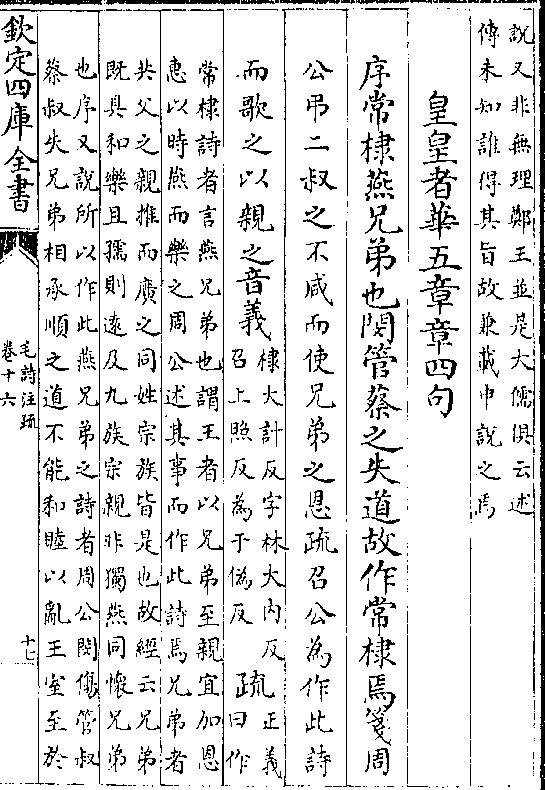 說又非無理鄭王並是大儒俱云述
傳未知誰得其旨故兼載申說之焉
皇皇者華五章章四句
序常棣燕兄弟也閔管蔡之失道故作常棣焉箋周
公弔二叔之不咸而使兄弟之恩疏召公為作此詩
而歌之以親之音義
棣大計反字林大內反
召上照反為于偽反
疏
正義
曰作
常棣詩者言燕兄弟也謂王者以兄弟至親宜加恩
惠以時燕而樂之周公述其事而作此詩焉兄弟者
共父之親推而廣之同姓宗族皆是也故經云兄弟
既具和樂且孺則遠及九族宗親非獨燕同懷兄弟
也序又說所以作此燕兄弟之詩者周公閔傷管叔
蔡叔失兄弟相承順之道不能和睦以亂王室至於
欽定四庫全書
毛詩注疏
卷十六
十七